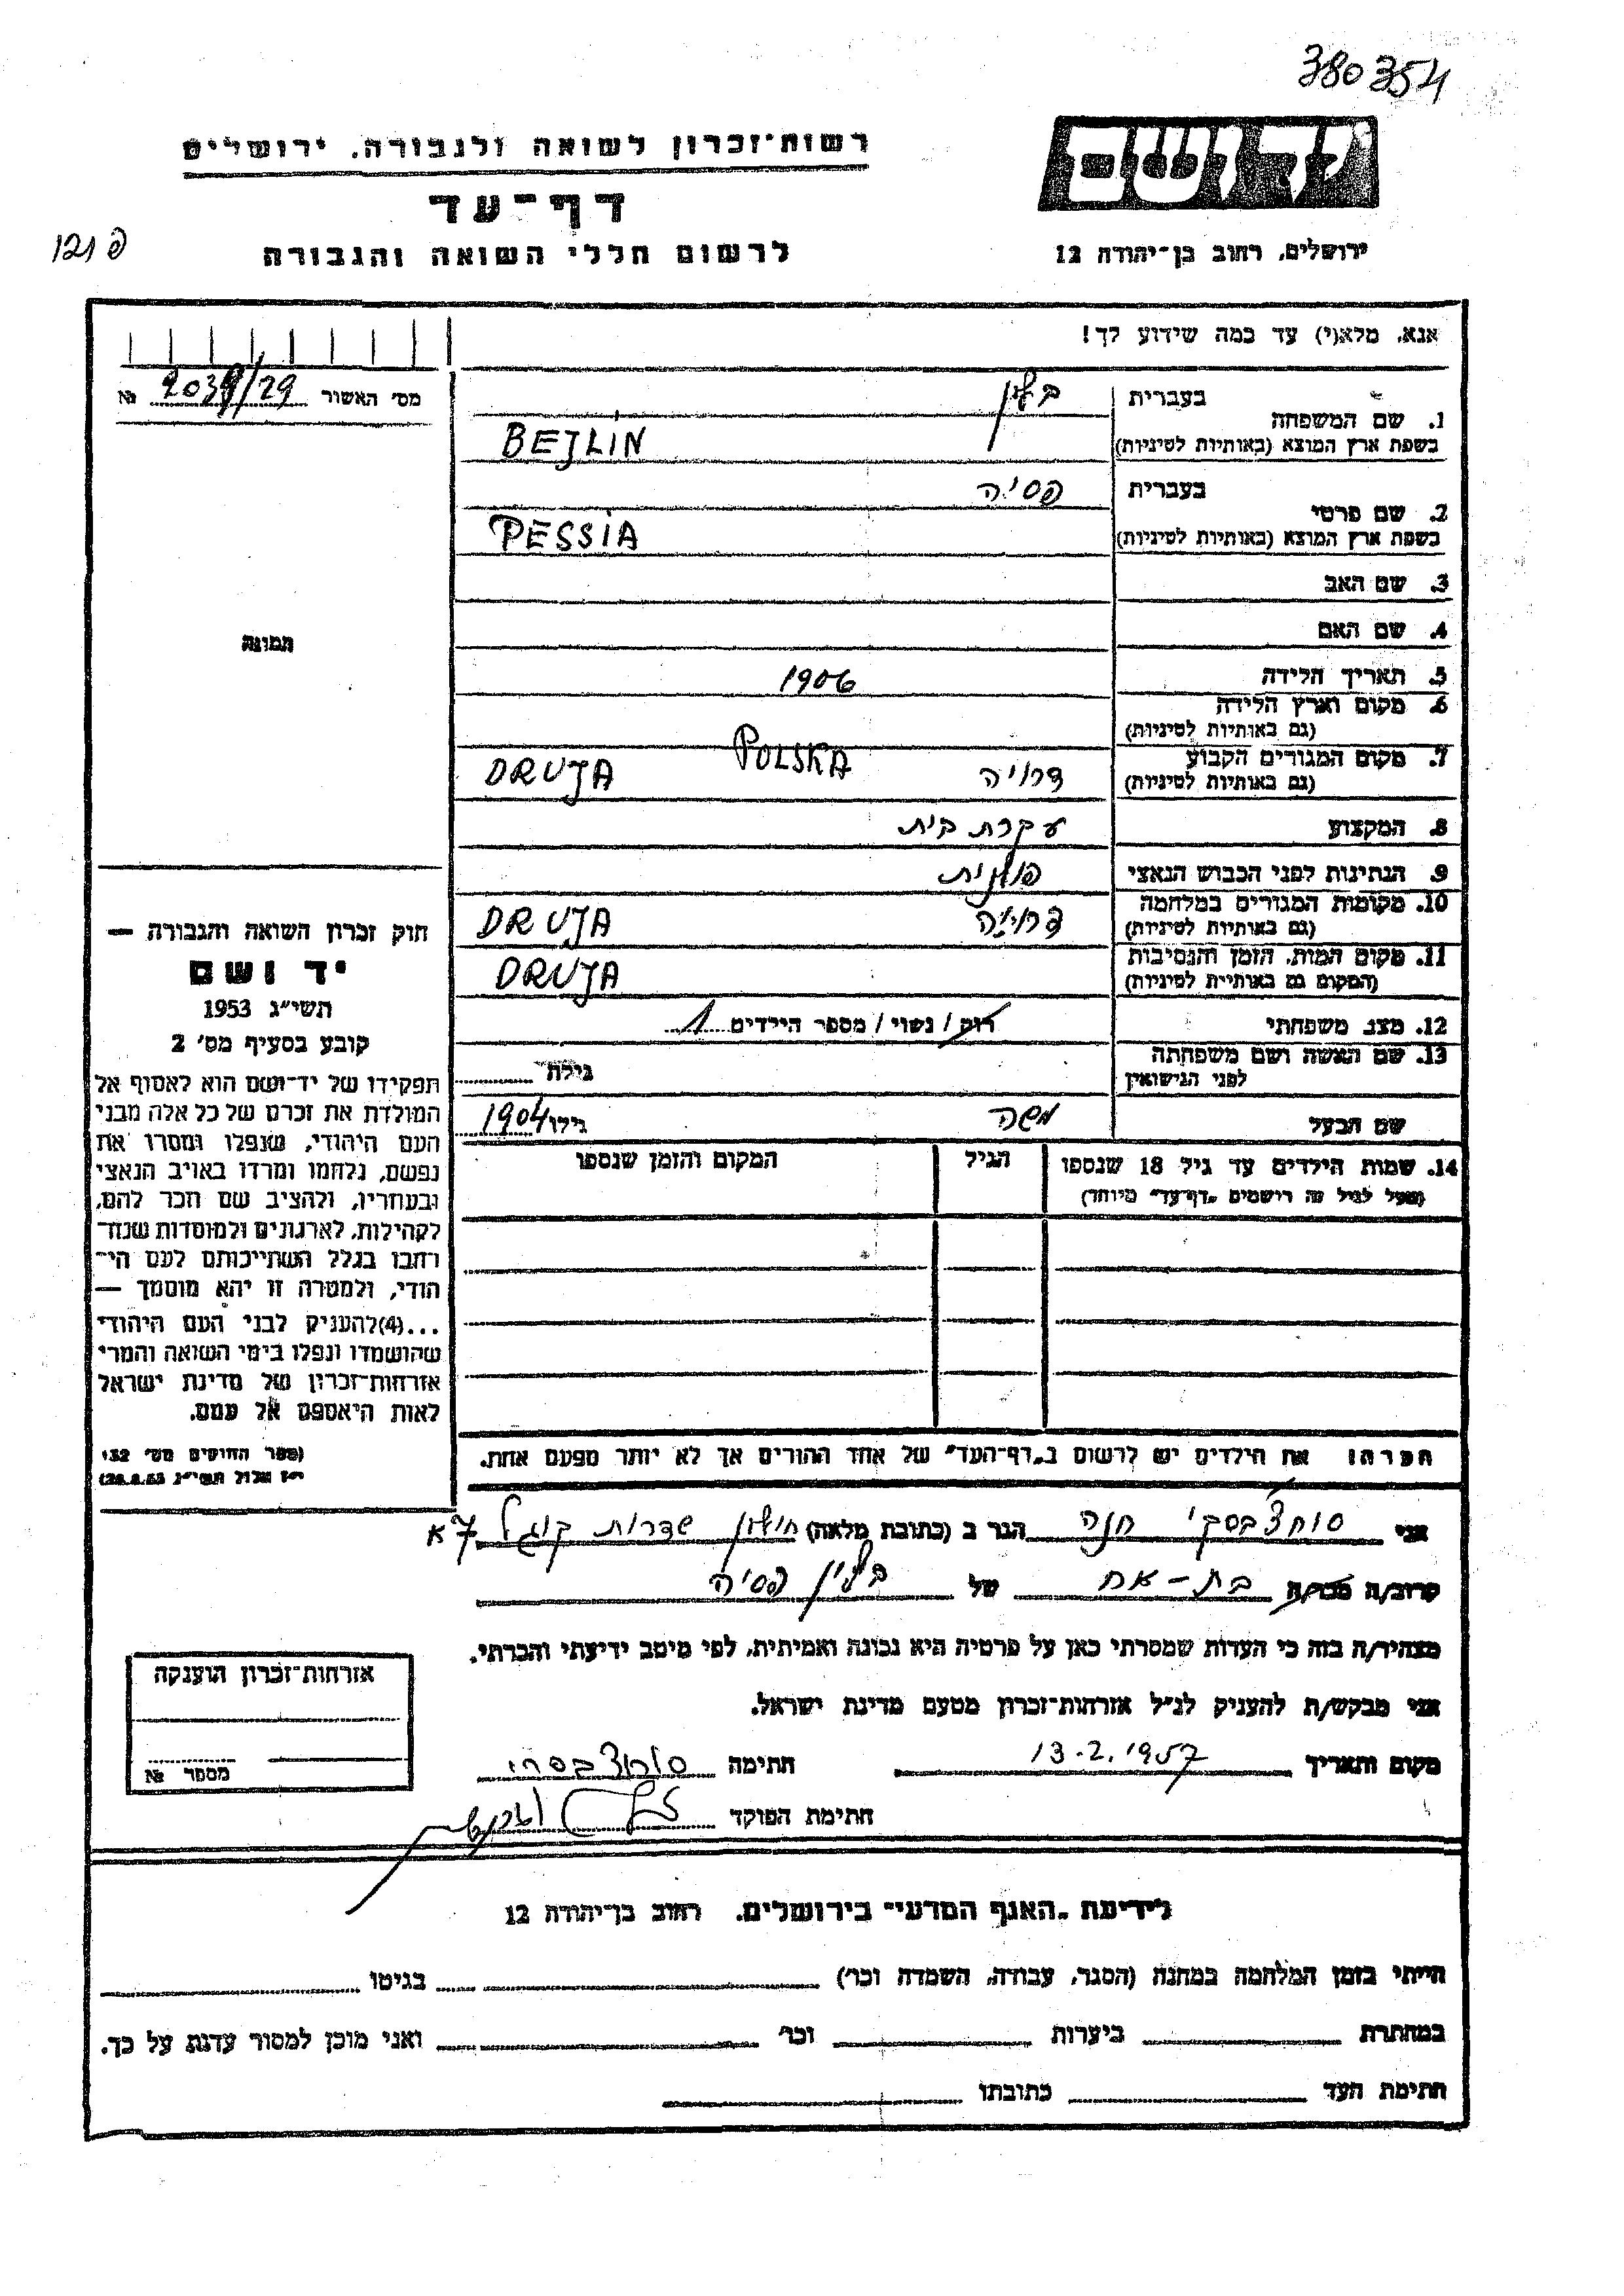 380354
יד ושם
רשות־זכרון לשואה ולגבורה, ירושלים
דף־עד
לרשום חללי השואה והגבורה
ירושלים, רחוב בן־יהודה 12
פ 121
אנא, מלא(י) עד כמה שידוע לך!
מס׳ האשור 29/ №
1. שם המשפחה
בעברית בילין
בשפת ארץ המוצא (באותיות לטיניות) BEJLIN
2. שם פרטי
בעברית פסיה
בשפת ארץ המוצא (באותיות לטיניות) PESSIA
3. שם האב
4. שם האם
תמונה
5. תאריך הלידה 1906
6. מקום וארץ הלידה
(גם באותיות לטיניות) POLSKA
7. מקום המגורים הקבוע דרויה DRUJA
(גם באותיות לטיניות)
8. המקצוע עקרת בית
9. הנתינות לפני הכבוש הנאצי פולנית
10. מקומות המגורים במלחמה דרויה DRUJA
(גם באותיות לטיניות)
11. מקום המות, הזמן והנסיבות DRUJA
(המקום גם באותיות לטיניות)
12. מצב משפחתי רוק / נשוי / מספר הילדים 1
13. שם האשה ושם משפחתה
לפני הנישואין גילה
שם הבעל משה גילו 1904
14. שמות הילדים עד גיל 18 שנספו הגיל המקום והזמן שנספו
(מעל לגיל זה רושמים „דף־עד" מיוחד)
חוק זכרון השואה והגבורה —
יד ושם
תשי״ג 1953
קובע בסעיף מס׳ 2
תפקידו של יד־ושם הוא לאסוף אל
המולדת את זכרם של כל אלה מבני
העם היהודי, שנפלו ומסרו את
נפשם, נלחמו ומרדו באויב הנאצי
ובעוזריו, ולהציב שם וזכר להם,
לקהילות, לארגונים ולמוסדות שנח־
רבו בגלל השתייכותם לעם הי־
הודי, ולמטרה זו יהא מוסמך —
...(4)להעניק לבני העם היהודי
שהושמדו ונפלו בימי השואה והמרי
אזרחות־זכרון של מדינת ישראל
לאות היאספם אל עמם.
(ספר החוקים מס׳ 132,
י״ז אלול תשי״ג 28.8.53)
הערה: את הילדים יש לרשום ב„דף־העד" של אחד ההורים אך לא יותר מפעם אחת.
אני חנה הגר ב (כתובת מלאה) שדרות קוגל 7א
קרוב/ה מכר/ה בת-אח של בילין פסיה
מצהיר/ה בזה כי העדות שמסרתי כאן על פרטיה היא נכונה ואמיתית, לפי מיטב ידיעתי והכרתי.
אני מבקש/ת להעניק לנ״ל אזרחות־זכרון מטעם מדינת ישראל.
מקום ותאריך 13.2.1957 חתימה
חתימת הפוקד
אזרחות־זכרון הוענקה
מספר №
לידיעת „האגף המדעי" בירושלים, רחוב בן־יהודה 12
הייתי בזמן המלחמה במחנה (הסגר, עבודה, השמדה וכו׳) בגיטו
במחתרת ביערות וכו׳ ואני מוכן למסור עדות על כך.
חתימת העד כתובתו